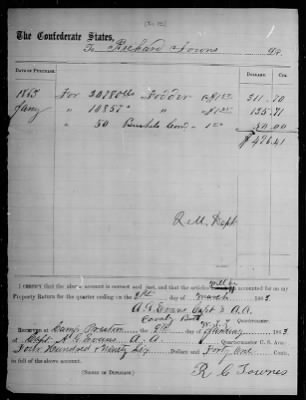 The Confederate States,
To Richard Towns Dr.
DATE OF PURCHASE. DOLLARS. CTS.
1863 For Fodder 311.70
Jany " 10857 " " 135.71
" 50 Bushels Corn 50.00
$ 496.41
Q.M. Dept
I CERTIFY that the above account is correct and just, and that the articles will be accounted for on my
Property Return for the quarter ending on the day of March 1863.
A G Evans Capt & A.A.
Quartermaster.
RECEIVED at Camp Preston the 9th of January 1863
of Capt. A G Evans A. A. Quartermaster C. S. Army
Four Hundred & Ninety Six Dollars and Forty One Cents,
in full of the above account.
(SIGNED IN DUPLICATE.) R C Townes